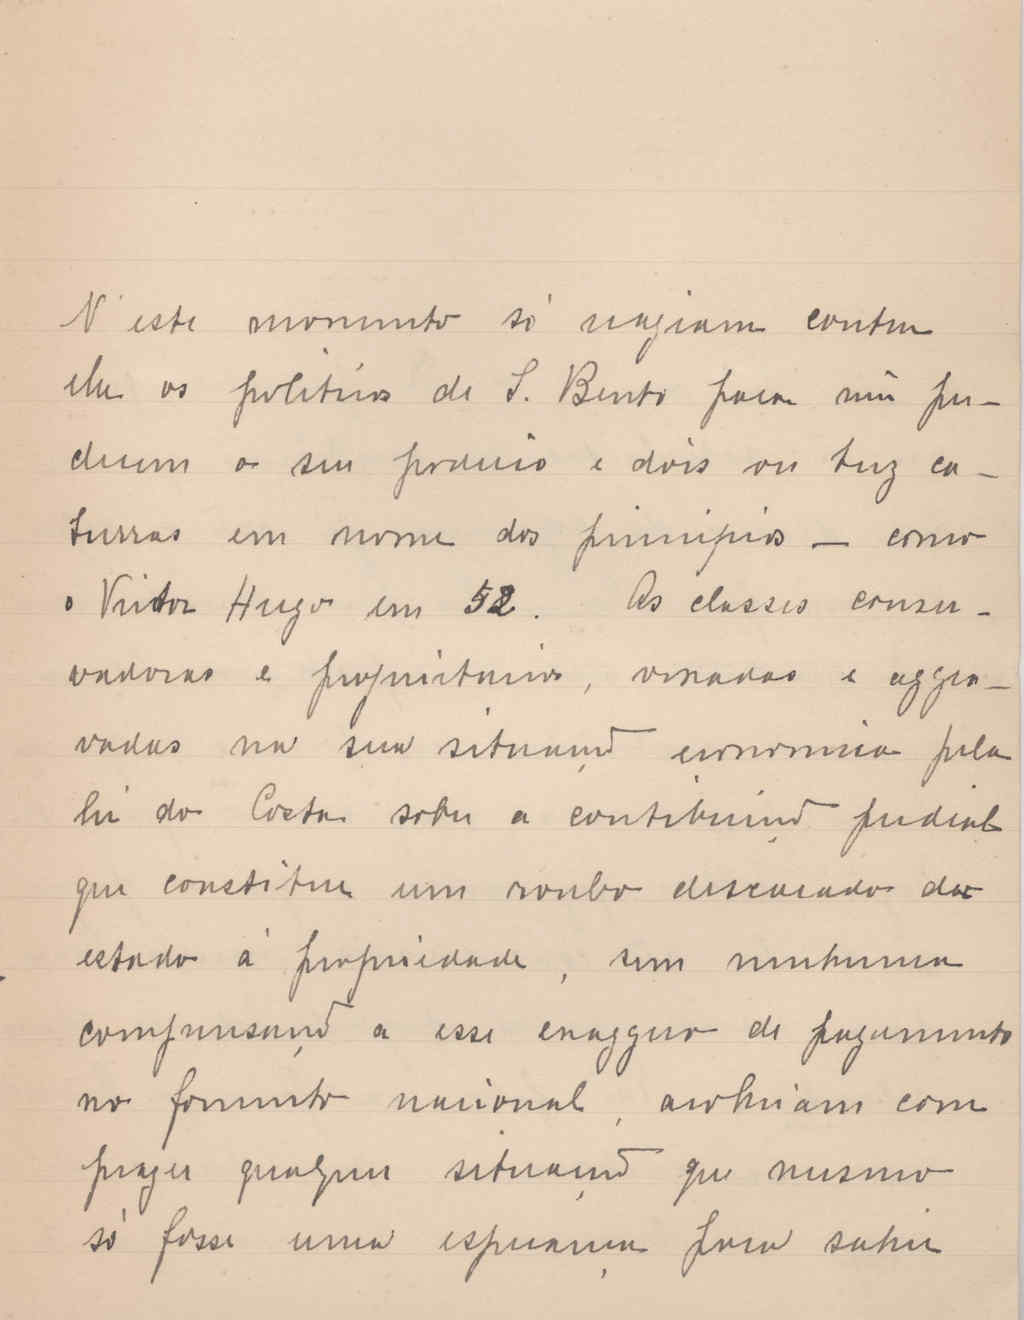 N'este momento só reagiam contra
elle os politicos de S. Bento para não per-
derem o seu poderio e dois ou trez ca-
turras em nome dos principios — como
o Victor Hugo em 52. As classes conser-
vadoras e proprietarios, vexadas e aggra-
vadas na sua situação economica pela
lei do Costa sobre a contribuição predial
que constitue um roubo descarado do
estado á propriedade, sem nenhuma
compensação a esse exaggero de pagamento
no fomento nacional, acolheriam com
prazer qualquer situação que mesmo
só fosse uma esperança para sahir